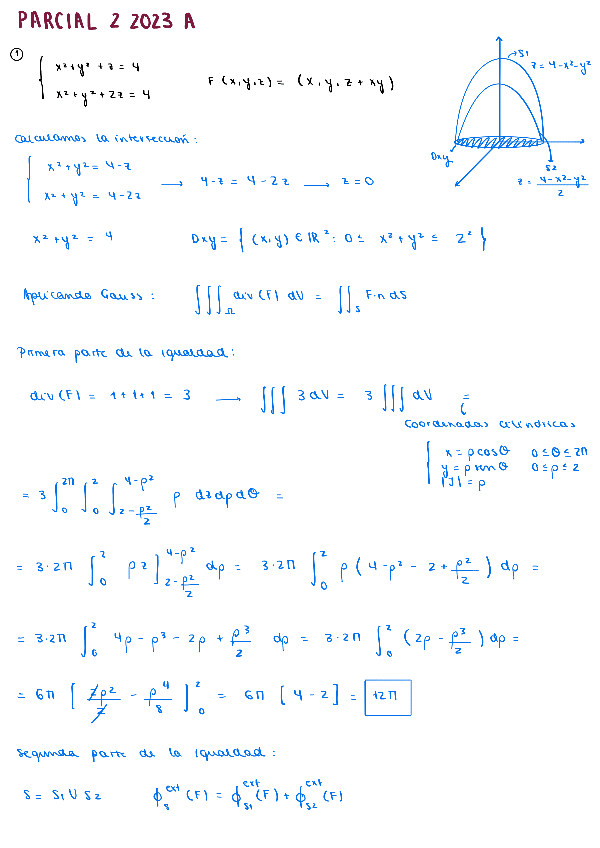 PARCIAL 2 2023 A
① { x² + y² + z = 4
x² + y² + 2z = 4
F (x, y, z) = (x, y, z + xy)
S1
z = 4 - x² - y²
Dxy
S2
z = (4 - x² - y²)/2
Calculamos la intersección:
{ x² + y² = 4 - z
x² + y² = 4 - 2z
→ 4 - z = 4 - 2z → z = 0
x² + y² = 4 Dxy = { (x, y) ∈ ℝ² : 0 ≤ x² + y² ≤ 2² }
Aplicando Gauss: ∭_Ω div (F) dV = ∬_S F·n dS
Primera parte de la igualdad:
div (F) = 1 + 1 + 1 = 3 → ∭ 3 dV = 3 ∭ dV =
Coordenadas cilíndricas
{ x = ρ cos θ 0 ≤ θ ≤ 2π
y = ρ sen θ 0 ≤ ρ ≤ 2
|J| = ρ
= 3 ∫₀^2π ∫₀² ∫_{2 - ρ²/2}^{4 - ρ²} ρ dz dρ dθ =
= 3·2π ∫₀² ρ z ]_{2 - ρ²/2}^{4 - ρ²} dρ = 3·2π ∫₀² ρ ( 4 - ρ² - 2 + ρ²/2 ) dρ =
= 3·2π ∫₀² 4ρ - ρ³ - 2ρ + ρ³/2 dρ = 3·2π ∫₀² ( 2ρ - ρ³/2 ) dρ =
= 6π [ 2ρ²/2 - ρ⁴/8 ]₀² = 6π [ 4 - 2 ] = 12π
Segunda parte de la igualdad:
S = S1 ∪ S2 ϕ_S^ext (F) = ϕ_S1^ext (F) + ϕ_S2^ext (F)